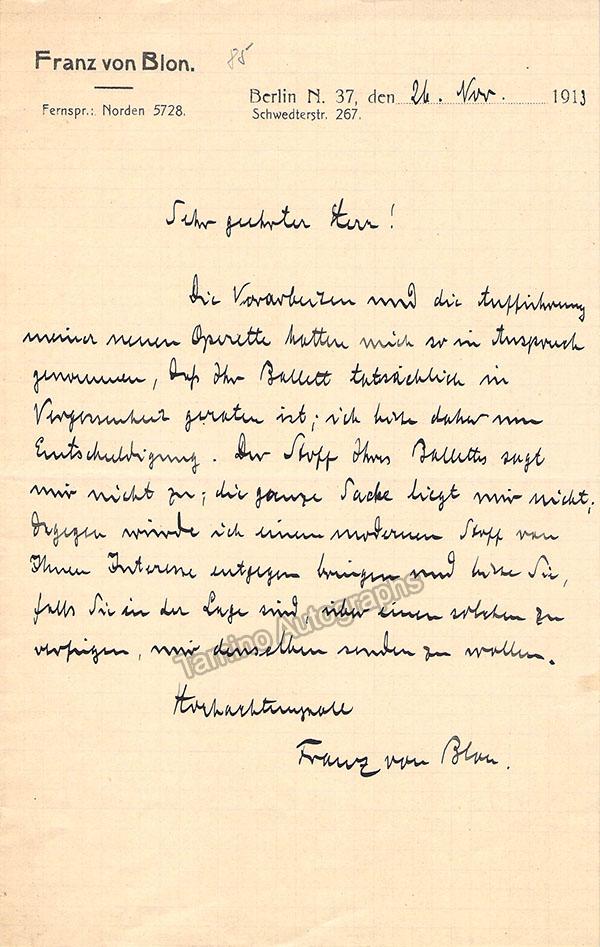 Franz von Blon. 85
Fernspr.: Norden 5728.
Berlin N. 37, den 26. Nov. 1913
Schwedterstr. 267.
Sehr geehrter Herr!
Die Vorarbeiten und die Aufführung
meiner neuen Operette hatten mich so in Anspruch
genommen, daß Ihr Ballett tatsächlich in
Vergessenheit geraten ist; ich bitte daher um
Entschuldigung. Der Stoff Ihres Ballettes sagt
mir nicht zu; die ganze Sache liegt mir nicht;
dagegen würde ich einem modernen Stoff von
Ihnen Interesse entgegen bringen und bitte Sie,
falls Sie in der Lage sind, über einen solchen zu
verfügen, mir denselben senden zu wollen.
Hochachtungsvoll
Franz von Blon.
Tamino Autographs